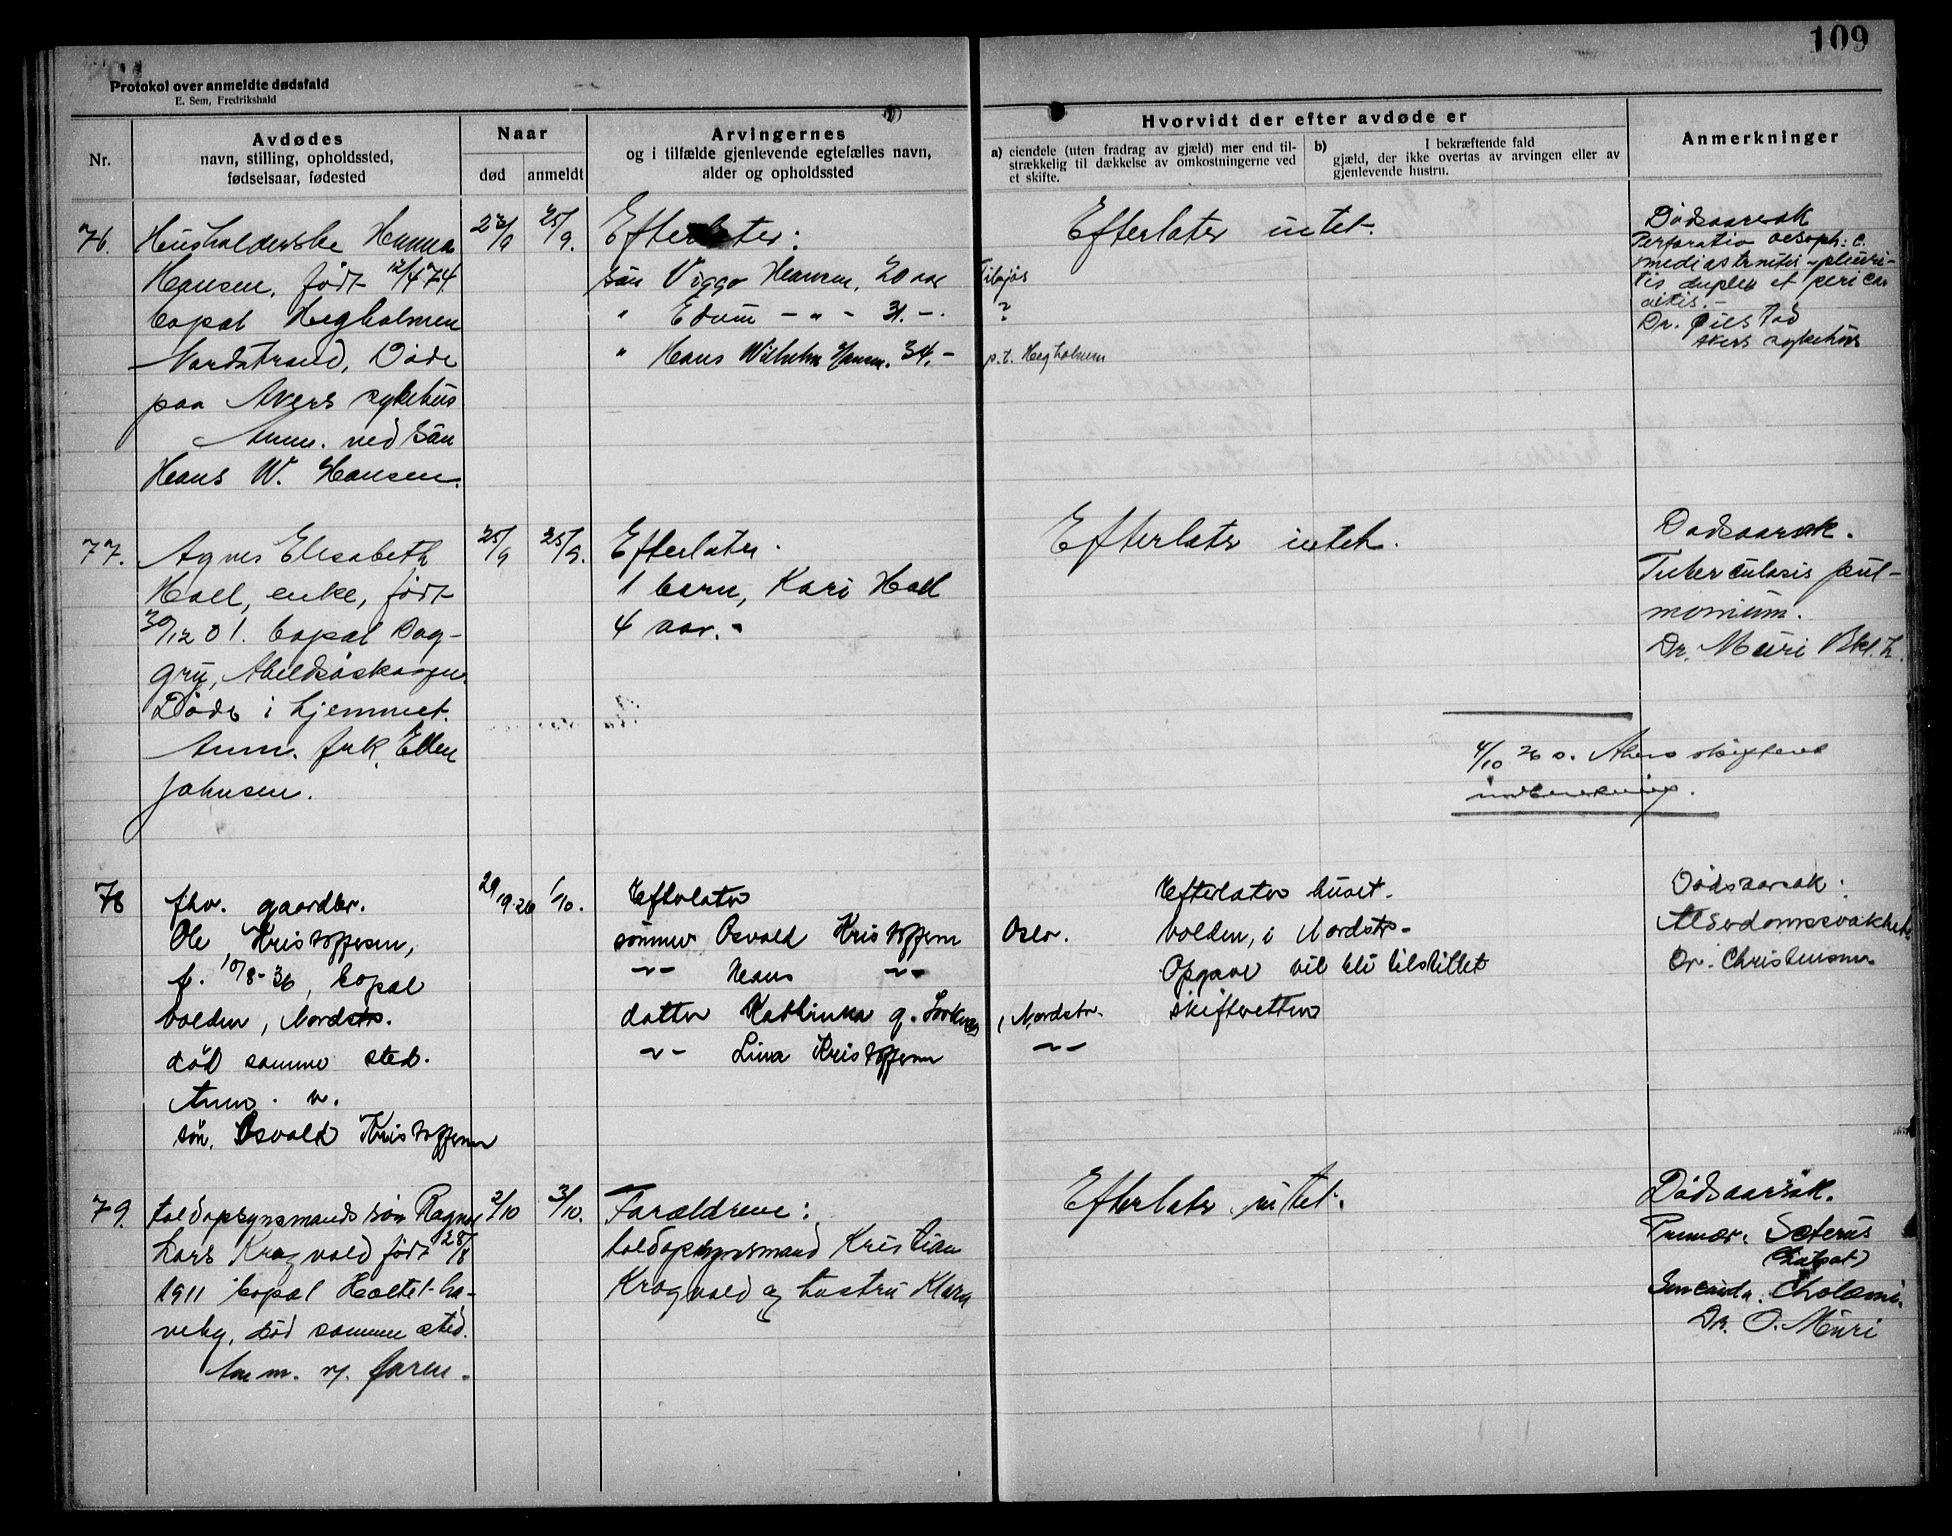 109
Protokol over anmeldte dødsfald
E. Sem, Fredrikshald
Nr.
Avdødes
navn, stilling, opholdssted,
fødselsaar, fødested
Naar
død
anmeldt
Arvingernes
og i tilfælde gjenlevende egtefælles navn,
alder og opholdssted
Hvorvidt der efter avdøde er
a) eiendele (uten fradrag av gjæld) mer end til-
strækkelig til dækkelse av omkostningerne ved
et skifte.
b) I bekræftende fald
gjæld, der ikke overtas av arvingen eller av
gjenlevende hustru.
Anmerkninger
76.
Husholderske Hanna
Hansen, født 12/4 74.
bopæl Hegholmen
Nordstrand, Døde
paa Akers sykehus
Anm. ved søn
Hans W. Hansen.
22/9
25/9.
Efterlater:
søn Viggo Hansen, 20 aar
" Edvin - " - 31. -
" Hans Wilhelm Hansen. 34. -
tilsjøs
"
p.t. Hegholmen
Efterlater intet.
Dødsaarsak
Perforatio oesoph: c.
mediastenitis - pleuri-
tis duplex et pericar
ditis. -
Dr.
Akers sykehus
77.
Agnes Elisabeth
Hall, enke, født
30/12 01. bopæl Dag-
gry, Abildsøskogen.
Døde i hjemmet.
Anm. frk. Ellen
Johnsen.
25/9
25/9.
Efterlater.
1 barn, Kari Hall
4 aar. -
Efterlater intet.
Dødsaarsak.
Tuberculosis pul-
monum.
Dr. Muri Bkl. h.
4/10 26 s. Akers skifteret
78
fhv. gaardbr.
Ole Kristoffersen,
f. 10/8-36, bopæl
volden, Nordstr.
død samme sted.
Anm. v.
søn. Osvald Kristoffersen
29/9 26
1/10.
Efterlater
sønner Osvald Kristoffersen
-"- Hans -"-
datter Kathinka g.
-"- Lina Kristoffersen
Oslo.
, Nordstr.
-"-
Efterlater huset
volden, i Nordstr-
Opgave vil bli tilstillet
skifteretten
Dødsaarsak.
Alderdomssvakhet
Dr. Christensen
79.
toldopsynsmands søn Ragnar
Lars Kragvold født 28/8
1911 bopæl Holtet-ha-
veby, død samme sted.
Anm. v/ faren.
2/10
3/10.
Forældrene:
toldopsynsmand Kristian
Kragvold og hustru Klara
Efterlater intet.
Dødsaarsak.
Primær.
Dr. O. Muri